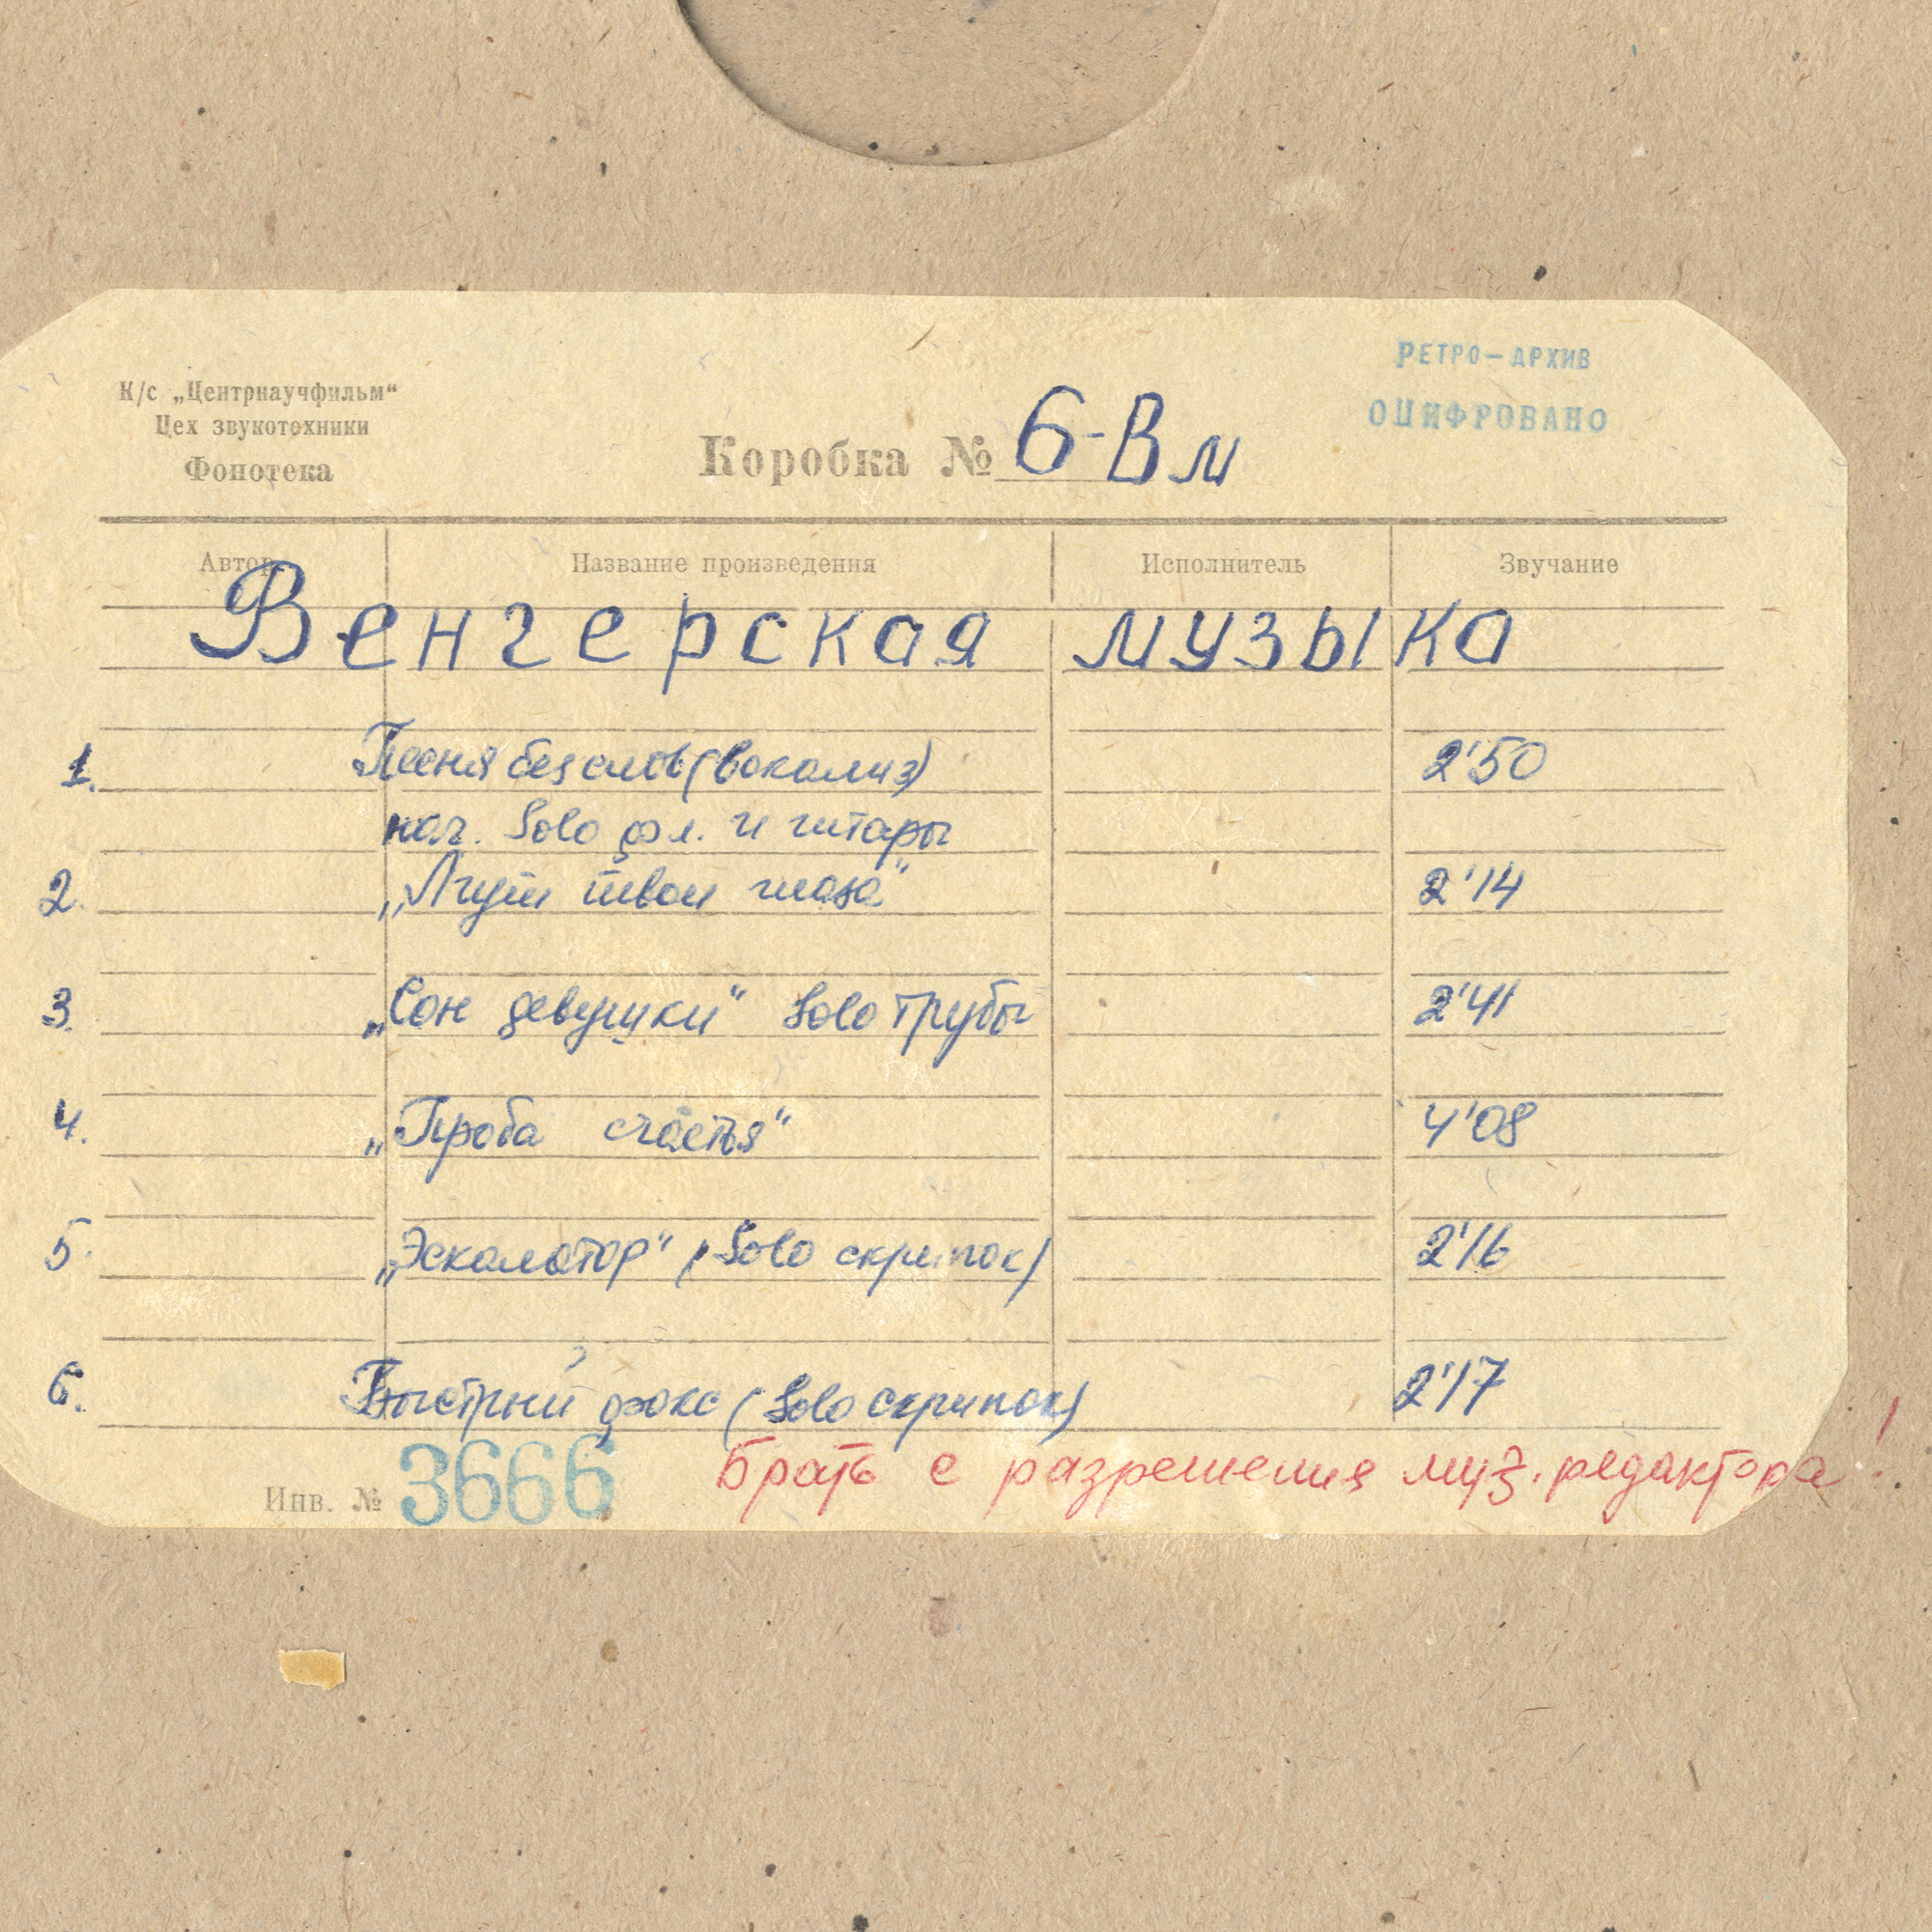 К/с „Центрнаучфильм“
Цех звукотехники
Фонотека
Коробка № 6-Вм
РЕТРО-АРХИВ
ОЦИФРОВАНО
Автор Название произведения Исполнитель Звучание
Венгерская музыка
1. Песня без слов (вокализ) 2'50
нач. Solo фл. и гитары
2. „Лгут твои глаза“ 2'14
3. „Сон девушки“ Solo трубы 2'41
4. „Проба счастья“ 4'08
5. „Эскалатор“ (Solo скрипок) 2'16
6. Быстрый фокс (Solo скрипок) 2'17
Инв. № 3666 Брать с разрешения муз. редактора!